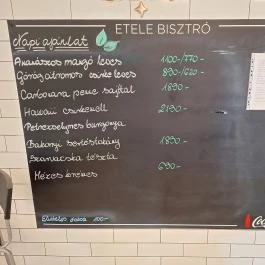 ETELE BISZTRÓ
Napi ajánlat
Ananászos mangó leves 1100-/770-
Görög citromos csirke leves 890-/620-
Carbonara penne sajttal 1890.-
Hawaii csirkemell 2190.-
Petrezselymes burgonya
Bakonyi sertéstokány 1890.-
Szarvacska tészta
Mézes krémes 690.-
Elviteles doboz 100.-